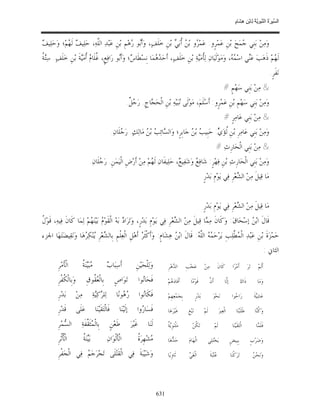 السّيرَةُ النّبَوِيّةُ لابْنِ هِشَامٍ
وَمِنْ بَنِي جُمَحَ بْنِ عَمْرِو عَمْرُو بْنُ أُبَيّ بْنِ خَلَفٍ، وَأَبُو رُهْمِ بْنِ عَبْدِ اللّهِ، حَلِيفٌ لَهُمْ؛ وَحَلِيفٌ
لَهُمْ ذَهَبَ عَنّي اسْمُهُ، وَمَوْلَيَانِ لِأُمَيّةَ بْنِ خَلَفٍ، أَحَدُهُمَا نِسْطَاسٌ؛ وَأَبُو رَافِعٍ، غُلَامُ أُمَيّةَ بْنِ خَلَفٍ. سِتّةُ
نَفَرٍ
& مِنْ بَنِي سَهْمٍ #
وَمِنْ بَنِي سَهْمِ بْنِ عَمْرٍو أَسْلَمُ، مَوْلَى نُبَيْهِ بْنِ الْحَجّاجِ. رَجُلٌ
& مِنْ بَنِي عَامِرٍ #
وَمِنْ بَنِي عَامِرِ بْنِ لُؤَيّ حَبِيبُ بْنُ جَابِرٍ؛ وَالسّائِبُ بْنُ مَالِكٍ. رَجُلَانِ
& مِنْ بَنِي الْحَارِثِ #
وَمِنْ بَنِي الْحَارِثِ بْنِ فِهْرٍ شَافِعٌ وَشَفِيعٌ، حَلِيفَانِ لَهُمْ مِنْ أَرْضِ الْيَمَنِ. رَجُلَانِ
مَا قِيلَ مِنْ الشّعْرِ فِي يَوْمِ بَدْرٍ
مَا قِيلَ مِنْ الشّعْرِ فِي يَوْمِ بَدْرٍ
قَالَ ابْنُ إسْحَاقَ وَكَانَ مِمّا قِيلَ مِنْ الشّعْرِ فِي يَوْمِ بَدْرٍ، وَتَرَادّ بِهِ الْقَوْمُ بَيْنَهُمْ لِمَا كَانَ فِيهِ، قَوْلُ
حَمْزَةَ بْنِ عَبْدِ الْمُطّلِبِ يَرْحَمُهُ اللّهُ قَالَ ابْنُ هِشَامٍ وَأَكْثَرُ أَهْلِ الْعِلْمِ بِالشّعْرِ يُنْكِرُهَا وَنَقِيضَتَهَا الجزء
الثاني
أَلَمْ تَرَ أَمْرًا كَانَ مِنْ عَجَبِ الدّهْرِ وَلِلْحَيْنِ أَسِبَابٌ مُبَيّنَةُ الْأَمْرِ
وَمَا ذَاكَ إلّا أَنّ قَوْمًا أَفَادَهُمْ فَحَانُوا تَوَاصٍ بِالْعُقُوقِ وَبِالْكُفْرِ
عَشِيّةَ رَاحُوا نَحْوَ بَدْرٍ بِجَمْعِهِمْ فَكَانُوا رُهُونًا لِلرّكِيّةِ مِنْ بَدْرِ
وَكُنّا طَلَبْنَا الْعِيرَ لَمْ نَبْغِ غَيْرَهَا فَسَارُوا إلَيْنَا فَالْتَقَيْنَا عَلَى قَدْرِ
فَلَمّا الْتَقَيْنَا لَمْ تَكُنْ مَثْنَوِيّةٌ لَنَا غَيْرَ طَعْنٍ بِالْمُثَقّفَةِ السّمْرِ
وَضَرْبٍ بِبِيضٍ يَخْتَلِي الْهَامَ حَدّهَا مُشْهِرَةُ الْأَلْوَانِ بَيّنَةُ الْأُثْرِ
وَنَحْنُ تَرَكْنَا عُتْبَةَ الْغَيّ ثَاوِيًا وَشَيْبَةَ فِي الْقَتْلَى تَجَرْجَمَ فِي الْجَفْرِ
631